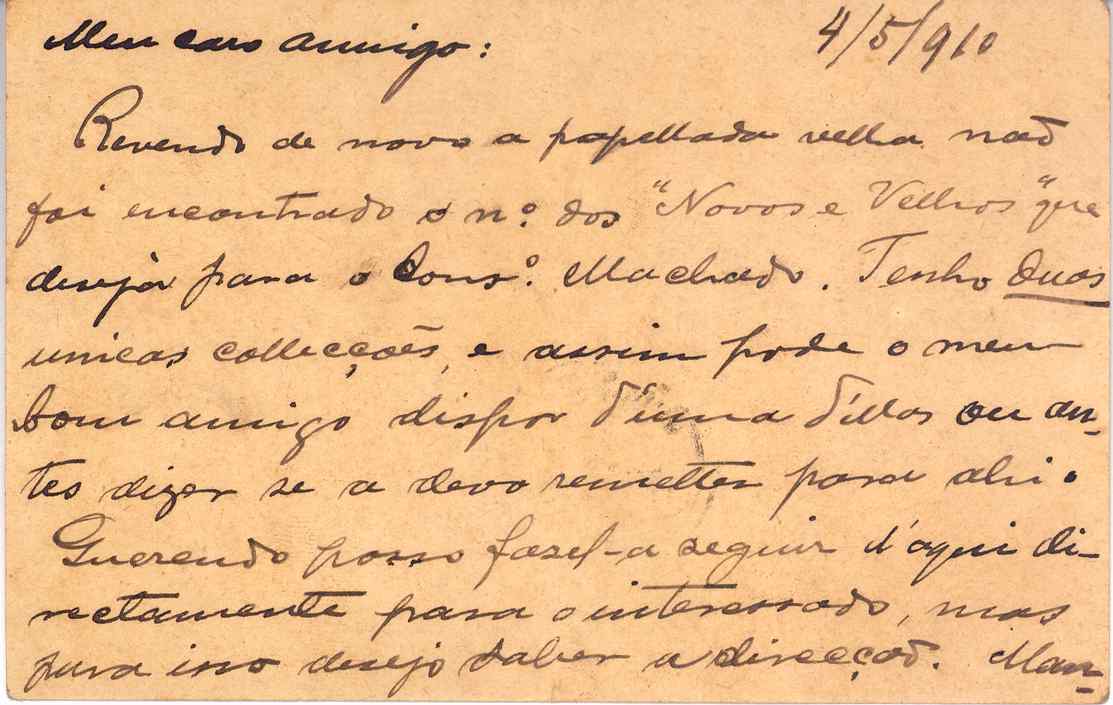 Meu caro amigo: 4/5/910
Revendo de novo a papellada velha não
foi encontrado o nº. dos "Novos e Velhos" que
deseja para o Consº. Machado. Tenho duas
unicas collecções, e assim pode o meu
bom amigo dispor d'uma d'ellas ou an-
tes dizer se a devo remetter para ahi.
Querendo posso fasel-a seguir d'aqui di-
rectamente para o interessado, mas
para isso desejo saber a direcção. Man-